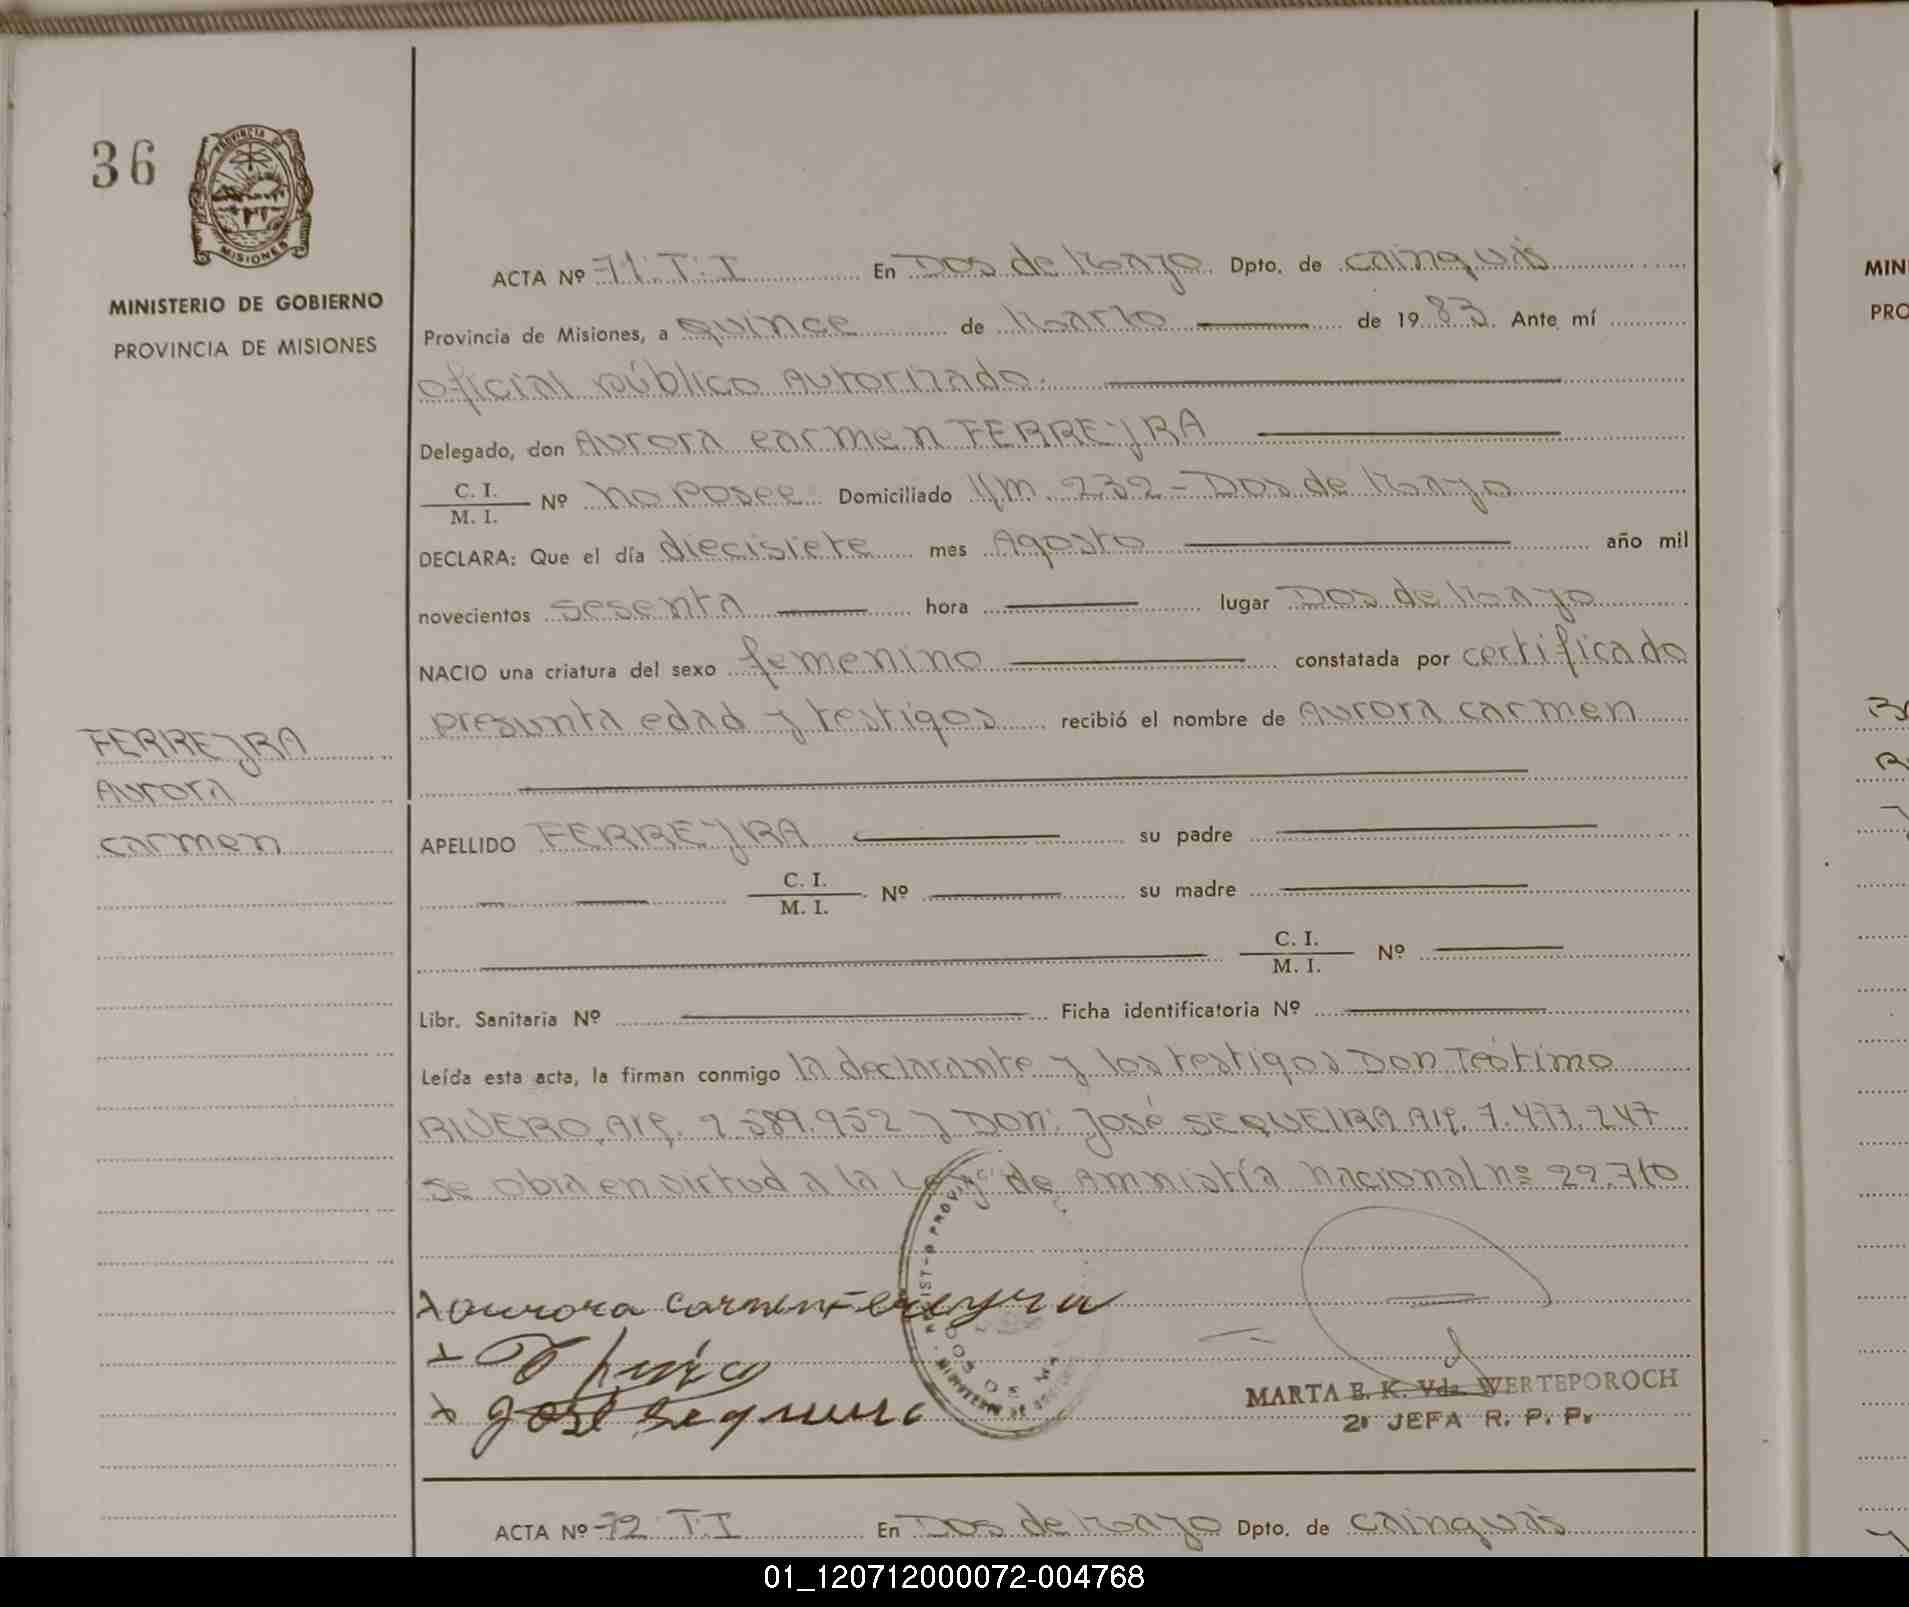 36
PROVINCIA DE
MISIONES
MINISTERIO DE GOBIERNO
PROVINCIA DE MISIONES
ACTA Nº 71. T. I En Dos de Mayo Dpto. de Cainguás
Provincia de Misiones, a quince de Marzo de 1983. Ante mí
oficial público Autorizado.
Delegado, don Aurora Carmen FERREYRA
C. I.
M. I. Nº No Posee Domiciliado Km. 232 - Dos de Mayo
DECLARA: Que el día diecisiete mes Agosto año mil
novecientos sesenta hora lugar Dos de Mayo
NACIO una criatura del sexo femenino constatada por certificado
presunta edad y testigos recibió el nombre de Aurora Carmen
FERREYRA
Aurora
Carmen
APELLIDO FERREYRA su padre
C. I.
M. I. Nº su madre
C. I.
M. I. Nº
Libr. Sanitaria Nº Ficha identificatoria Nº
Leída esta acta, la firman conmigo la declarante y los testigos Don Teótimo
RIVERO, Arg. 7.589.952 y Don: José SEQUEIRA Arg. 7.477.247
se obra en virtud a la Ley de Amnistía Nacional nº 22.710
Aurora Carmen Ferreyra
José Sequeira
MARTA E. K. Vda. WERTEPOROCH
2ª JEFA R. P. P.
ACTA Nº 72 T.I En Dos de Mayo Dpto. de Cainguás
MIN
PRO
01_120712000072-004768